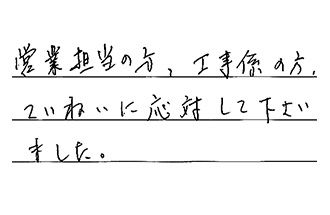 営業担当の方、工事係の方、
ていねいに応対して下さい
ました。